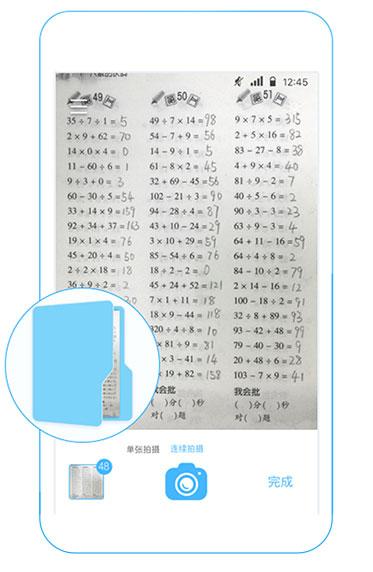 12:45
49 50 51
35 ÷ 7 ÷ 1 = 5 49 ÷ 7 × 14 = 98 9 × 7 × 5 = 315
2 × 9 + 62 = 70 54 − 7 + 9 = 56 2 + 5 × 16 = 82
14 × 0 × 4 = 0 14 − 9 ÷ 1 = 5 83 − 27 − 8 = 38
11 − 60 ÷ 6 = 1 61 − 8 × 2 = 45 4 + 9 × 4 = 40
9 ÷ 3 + 0 = 3 32 + 69 − 45 = 56 81 ÷ 9 − 2 = 7
60 − 30 ÷ 5 = 54 102 − 21 ÷ 3 = 90 40 ÷ 5 − 6 = 2
33 + 14 × 9 = 159 94 − 28 ÷ 4 = 87 90 ÷ 3 − 3 = 23
92 + 34 + 37 = 163 43 + 10 − 24 = 29 63 ÷ 9 − 3 = 4
19 × 1 × 4 = 76 3 × 10 + 29 = 59 64 + 11 − 16 = 59
45 + 20 ÷ 4 = 50 85 − 54 ÷ 6 = 76 64 ÷ 4 ÷ 8 = 2
2 ÷ 2 × 18 = 18 18 ÷ 2 − 2 = 0 84 − 10 ÷ 2 = 79
36 ÷ 9 ÷ 2 = 2 45 + 24 + 52 = 121 2 × 14 − 16 = 12
20 7 × 1 + 11 = 18 100 − 18 ÷ 2 = 91
18 × 9 − 44 = 118 32 ÷ 8 + 89 = 93
320 ÷ 4 ÷ 8 = 10 93 − 42 + 48 = 99
× 81 ÷ 9 = 81 79 − 40 − 30 = 9
× 3 − 41 = 14 20 + 48 ÷ 6 = 28
× 19 + 82 = 158 103 − 7 × 9 = 41
我会批 我会批
( )分( )秒 ( )分( )秒
对( )题 对( )题
单张拍摄 连续拍摄
48
完成